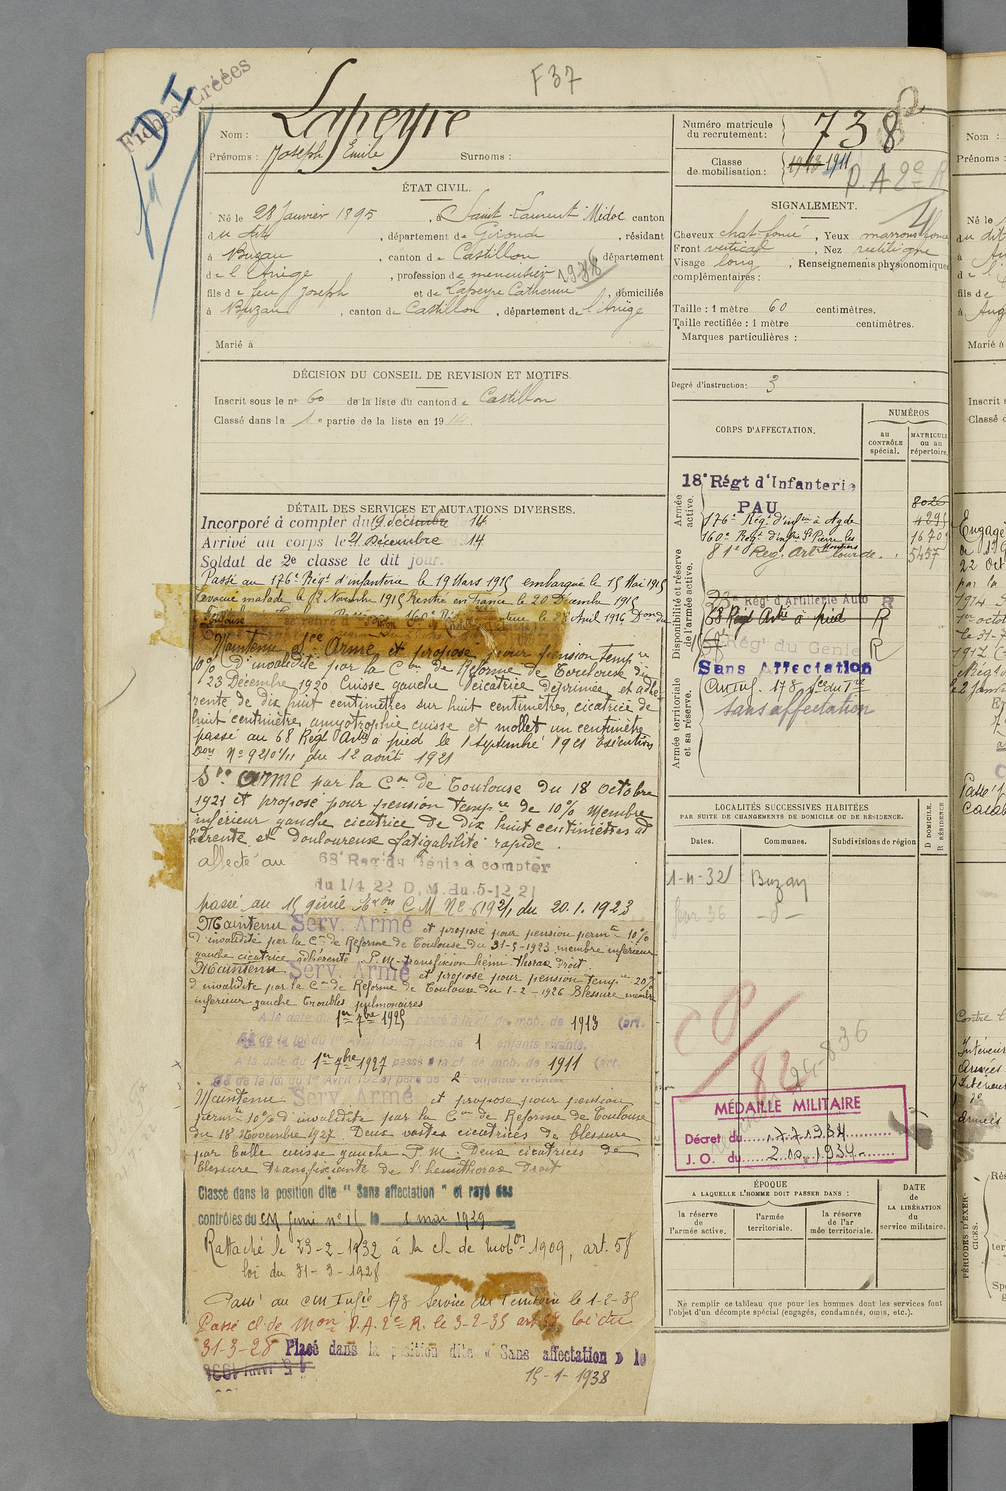 F37
Fiches Créées
DI
Nom : Lapeyre
Prénoms : Joseph Emile Surnoms :
ÉTAT CIVIL.
Né le 28 Janvier 1895, à Saint-Laurent Médoc canton
du dit, département de Gironde, résidant
à Buzan, canton de Castillon, département
de l'Ariège, profession de menuisier 1938
fils de feu Joseph et de Lapeyre Catherine, domiciliés
à Buzan, canton de Castillon, département de l'Ariège
Marié à
DÉCISION DU CONSEIL DE REVISION ET MOTIFS.
Inscrit sous le n° 60 de la liste du canton de Castillon
Classé dans la 1e partie de la liste en 1914.
DÉTAIL DES SERVICES ET MUTATIONS DIVERSES.
Incorporé à compter du 19 décembre 14
Arrivé au corps le 21 Décembre 14
Soldat de 2e classe le dit jour.
Passé au 176e Régt d'infanterie le 19 Mars 1915 embarqué le 15 Mai 1915
Evacué malade le 12 Novembre 1915 Rentré en France le 20 Décembre 1915
Maintenu Sce Armé et proposé pour pension tempre
10% d'invalidité par la Con de Réforme de Toulouse du
23 Décembre 1920 Cuisse gauche cicatrice déprimée et adhé
rente de dix huit centimètres sur huit centimètres, cicatrice de
huit centimètres amyotrophie cuisse et mollet un centimètre
passé au 68 Régt Artie à pied le 1 septembre 1921 Exécution
Don N° 9210 1/11 du 12 août 1921
Sce Armé par la Con de Toulouse du 18 octobre
1921 et proposé pour pension tempre de 10% Membre
inférieur gauche cicatrice de dix huit centimètres ad
hérente et douloureuse fatigabilité rapide.
affecté au 68e Rég du Génie à compter
du 1/4 22 D.M. du 5-12 21
passé au 15 génie Exon CM N° 6192/1 du 20.1.1923
Maintenu Serv. Armé et proposé pour pension permte 10%
d'invalidité par la Con de Réforme de Toulouse du 31-5-1923 membre inférieur
gauche cicatrice adhérente. P.M. transfixion hémi thorax droit
Maintenu Serv. Armé et proposé pour pension temp. 20%
d'invalidité par la Con de Réforme de Toulouse du 1-2-1926 Blessure membre
inférieur gauche Troubles pulmonaires
A la date du 1er 7bre 1925 passé à la cl. de mob. de 1913 (art.
58 de la loi du 1er Avril 1923) père de 1 enfants vivants.
A la date du 1er 7bre 1927 passé à la cl. de mob. de 1911 (art.
58 de la loi du 1er Avril 1923) père de 2 enfants vivants
Maintenu Serv. Armé et proposé pour pension
permte 10% d'invalidité par la Con de Réforme de Toulouse
du 18 Novembre 1927. Deux vastes cicatrices de blessure
par balle cuisse gauche P.M. Deux cicatrices de
blessure transfixiante de l'hémithorax droit
Classé dans la position dite " Sans affectation " et rayé des
contrôles du CM Génie n° 15 le 1 mai 1929
Rattaché le 23-2-1932 à la cl. de mobon 1909, art. 58
loi du 31-3-1928
Passé au CM Infie 173 Service du Territoire le 1-2-35
Passé cl. de Mon P.A. 2e R. le 3-2-35 art 58 loi du
31-3-28 Placé dans la position dite « Sans affectation » le
15-1-1938
15 JANV 1938
Numéro matricule
du recrutement : 738
Classe
de mobilisation : 1913 1911
P.A 2e R
SIGNALEMENT.
Cheveux chat. foncé, Yeux marrons foncé
Front vertical, Nez rectiligne
Visage long, Renseignements physionomiques
complémentaires :
Taille : 1 mètre 60 centimètres.
Taille rectifiée : 1 mètre centimètres.
Marques particulières :
Degré d'instruction : 3
CORPS D'AFFECTATION.
NUMÉROS
au CONTRÔLE spécial.
MATRICULE ou au répertoire.
Armée active.
18e Régt d'Infanterie
PAU 8026
176e Régt d'infie à Agde 4291
160e Régt d'infie 1670
81e Rég. Artie lourde. 5457
Disponibilité et réserve de l'armée active.
23e Rég d'Artillerie Auto R
68 Régt Artie à pied R
Rég' du Génie R
Sans Affectation
Armée territoriale et sa réserve.
sans affectation
LOCALITÉS SUCCESSIVES HABITÉES
PAR SUITE DE CHANGEMENTS DE DOMICILE OU DE RÉSIDENCE.
Dates. Communes. Subdivisions de région D DOMICILE. R RÉSIDENCE
1-11-32 Buzan
36 -d-
82
24-836
MÉDAILLE MILITAIRE
Décret du 17.7.1934
J. O. du 2.10.1934
ÉPOQUE
A LAQUELLE L'HOMME DOIT PASSER DANS :
la réserve de l'armée active.
l'armée territoriale.
la réserve de l'ar mée territoriale.
DATE DE LA LIBÉRATION du service militaire.
Ne remplir ce tableau que pour les hommes dont les services font
l'objet d'un décompte spécial (engagés, condamnés, omis, etc.).
Nom :
Prénoms
Né le
Marié à
Inscrit
Classé d
Engagé
PÉRIODES D'EXERCICES.